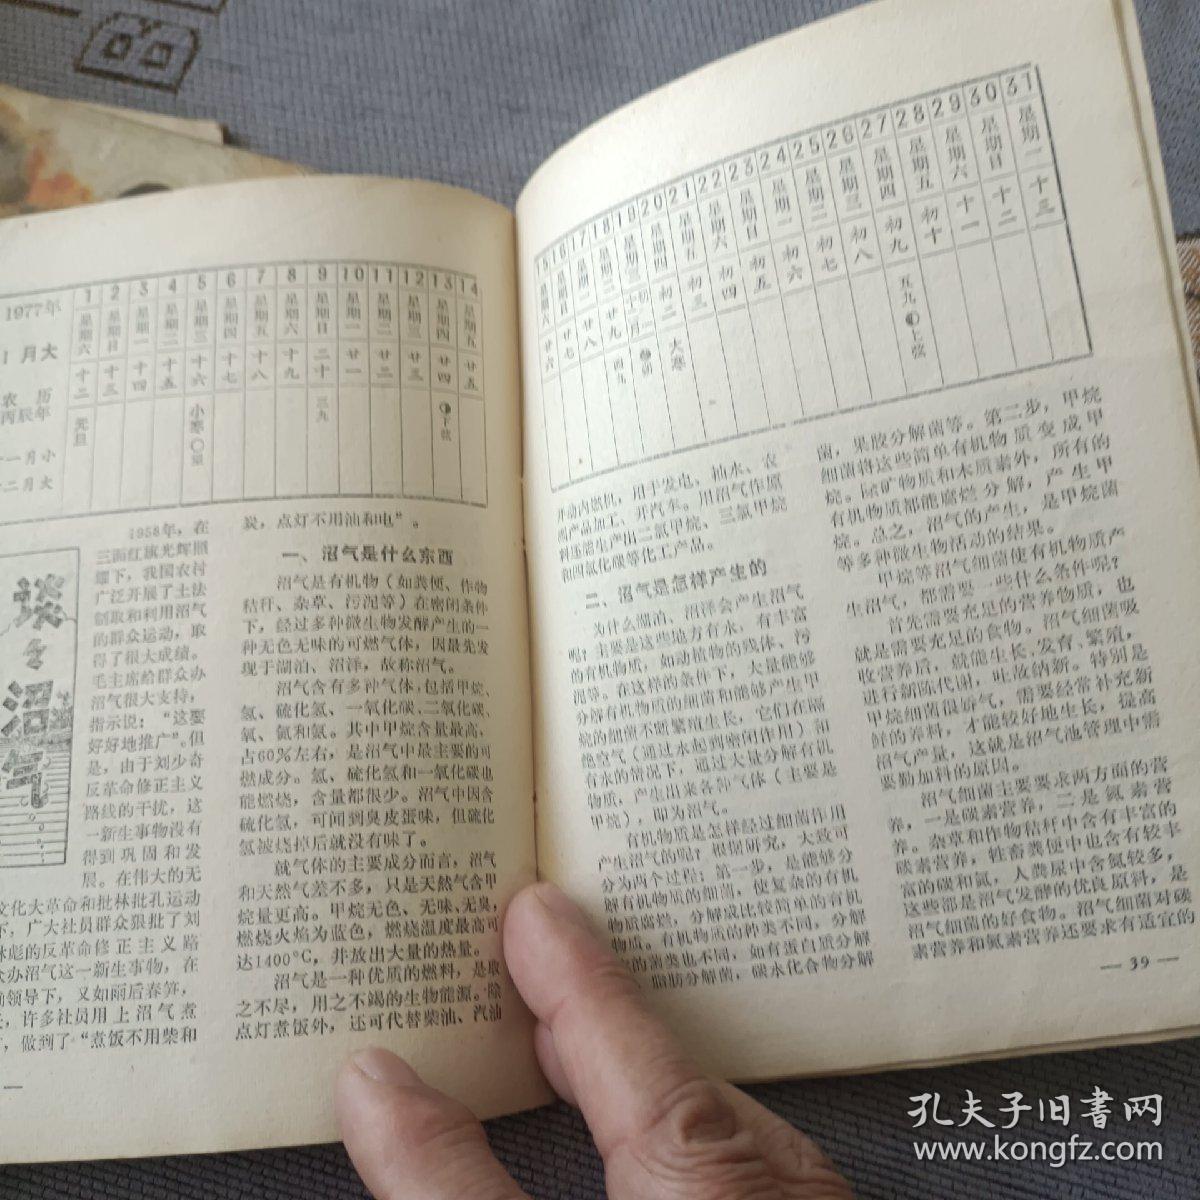 1977年
1月大
农历
丙辰年
一月小
二月大
1 2 3 4 5 6 7 8 9 10 11 12 13 14
星期六 星期日 星期一 星期二 星期三 星期四 星期五 星期六 星期日 星期一 星期二 星期三 星期四 星期五
十二 十三 十四 十五 十六 十七 十八 十九 二十 廿一 廿二 廿三 廿四 廿五
元旦 小寒 望 三九 下弦
15 16 17 18 19 20 21 22 23 24 25 26 27 28 29 30 31
星期六 星期日 星期一 星期二 星期三 星期四 星期五 星期六 星期日 星期一 星期二 星期三 星期四 星期五 星期六 星期日 星期一
廿六 廿七 廿八 廿九 十二月 初一 初二 初三 初四 初五 初六 初七 初八 初九 初十 十一 十二 十三
四九 朔 大寒 五九 上弦
谈谈沼气
1958年，在
三面红旗光辉照
耀下，我国农村
广泛开展了土法
制取和利用沼气
的群众运动，取
得了很大成绩。
毛主席给群众办
沼气很大支持，
指示说：“这要
好好地推广”。但
是，由于刘少奇
反革命修正主义
路线的干扰，这
一新生事物没有
得到巩固和发
展。在伟大的无
文化大革命和批林批孔运动
下，广大社员群众狠批了刘
林彪的反革命修正主义路
众办沼气这一新生事物，在
领导下，又如雨后春笋，
，许多社员用上沼气煮
，做到了“煮饭不用柴和
炭，点灯不用油和电”。
一、沼气是什么东西
沼气是有机物（如粪便、作物
秸秆、杂草、污泥等）在密闭条件
下，经过多种微生物发酵产生的一
种无色无味的可燃气体，因最先发
现于湖泊、沼泽，故称沼气。
沼气含有多种气体，包括甲烷、
氢、硫化氢、一氧化碳、二氧化碳、
氧、氮和氨。其中甲烷含量最高，
占60%左右，是沼气中最主要的可
燃成分。氢、硫化氢和一氧化碳也
能燃烧，含量都很少。沼气中因含
硫化氢，可闻到臭皮蛋味，但硫化
氢被烧掉后就没有味了。
就气体的主要成分而言，沼气
和天然气差不多，只是天然气含甲
烷量更高。甲烷无色、无味、无臭，
燃烧火焰为蓝色，燃烧温度最高可
达1400°C，并放出大量的热量。
沼气是一种优质的燃料，是取
之不尽，用之不竭的生物能源。除
点灯煮饭外，还可代替柴油、汽油
开动内燃机，用于发电、抽水、农
副产品加工、开汽车。用沼气作原
料还能生产出二氯甲烷、三氯甲烷
和四氯化碳等化工产品。
二、沼气是怎样产生的
为什么湖泊、沼泽会产生沼气
呢？主要是这些地方有水，有丰富
的有机物质，如动植物的残体、污
泥等。在这样的条件下，大量能够
分解有机物质的细菌和能够产生甲
烷的细菌不断繁殖生长，它们在隔
绝空气（通过水起到密闭作用）和
有水的情况下，通过大量分解有机
物质，产生出来各种气体（主要是
甲烷），即为沼气。
有机物质是怎样经过细菌作用
产生沼气的呢？根据研究，大致可
分为两个过程：第一步，是能够分
解有机物质的细菌，使复杂的有机
物质腐烂，分解成比较简单的有机
物质。有机物质的种类不同，分解
的菌类也不同，如有蛋白质分解
、脂肪分解菌，碳水化合物分解
菌，果胶分解菌等。第二步，甲烷
细菌将这些简单有机物质变成甲
烷。除矿物质和木质素外，所有的
有机物质都能腐烂分解，产生甲
烷。总之，沼气的产生，是甲烷菌
等多种微生物活动的结果。
甲烷等沼气细菌使有机物质产
生沼气，都需要一些什么条件呢？
首先需要充足的营养物质，也
就是需要充足的食物。沼气细菌吸
收营养后，就能生长、发育、繁殖，
进行新陈代谢，吐故纳新。特别是
甲烷细菌很娇气，需要经常补充新
鲜的养料，才能较好地生长，提高
沼气产量，这就是沼气池管理中需
要勤加料的原因。
沼气细菌主要要求两方面的营
养，一是碳素营养，二是氮素营
养。杂草和作物秸秆中含有丰富的
碳素营养，牲畜粪便中也含有较丰
富的碳和氮，人粪尿中含氮较多，
这些都是沼气发酵的优良原料，是
沼气细菌的好食物。沼气细菌对碳
素营养和氮素营养还要求有适宜的
— 39 —
孔夫子旧书网
www.kongfz.com